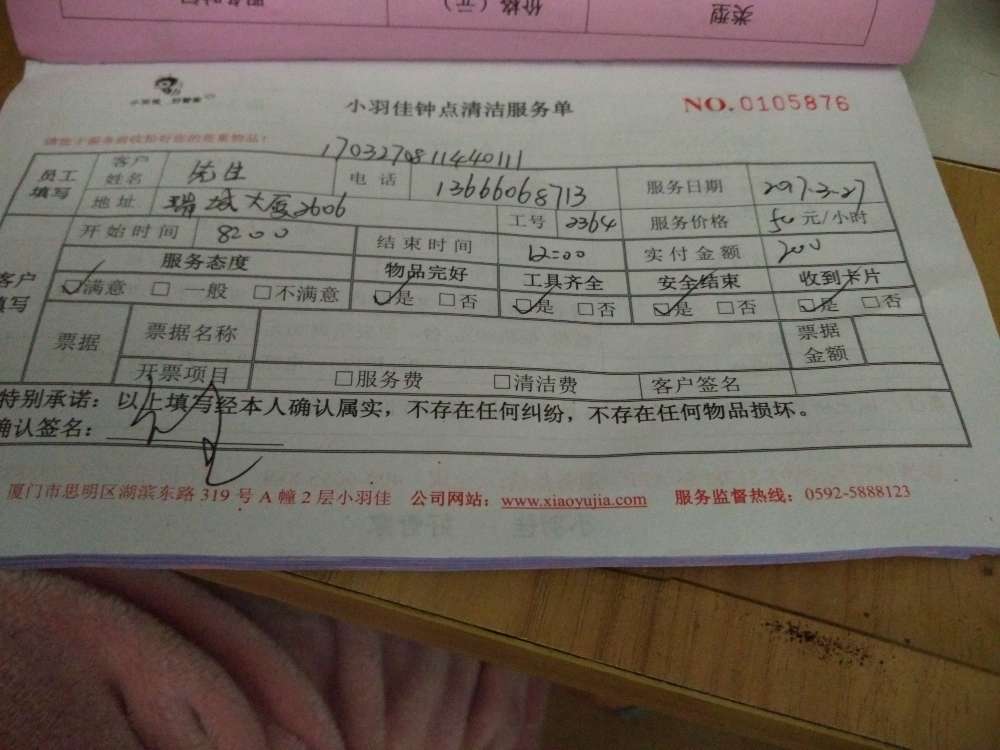 类型
价格（元）
小羽佳 好管家
小羽佳钟点清洁服务单
NO.0105876
1703270811440111
员工填写 客户姓名 先生 电话 13666068713 服务日期 2017-3-27
地址 瑞城大厦2606 工号 2364 服务价格 50元/小时
开始时间 8:00 结束时间 12:00 实付金额 200
客户填写 服务态度 物品完好 工具齐全 安全结束 收到卡片
☑满意 □一般 □不满意 ☑是 □否 ☑是 □否 ☑是 □否 ☑是 □否
票据 票据名称 票据金额
开票项目 □服务费 □清洁费 客户签名
特别承诺：以上填写经本人确认属实，不存在任何纠纷，不存在任何物品损坏。
确认签名：
厦门市思明区湖滨东路 319 号 A 幢 2 层小羽佳 公司网站：www.xiaoyujia.com 服务监督热线：0592-5888123